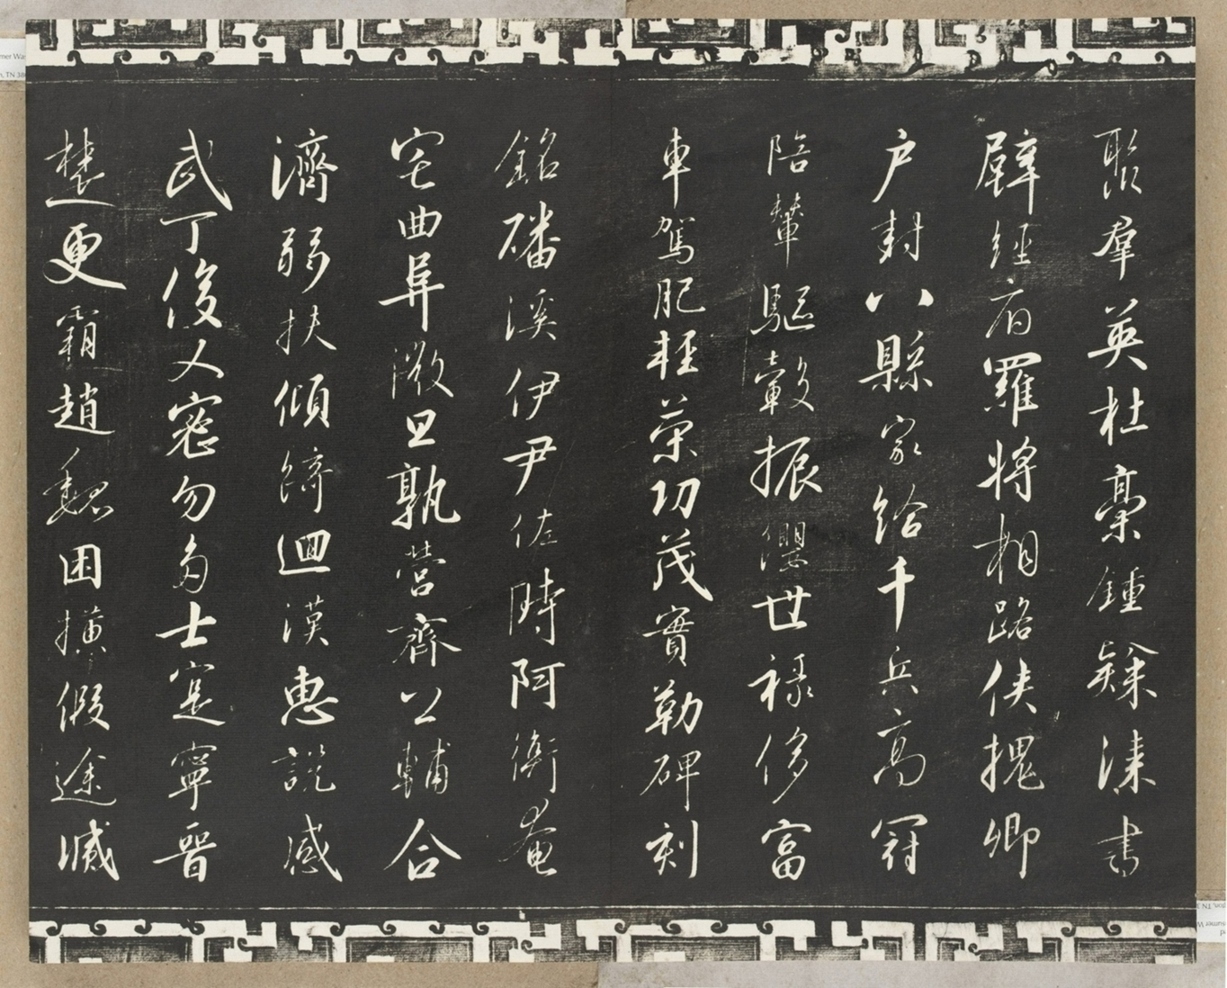 聚羣英杜稾鍾隸漆書
壁經府羅將相路俠槐卿
户封八縣家給千兵高冠
陪輦驅轂振纓世禄侈富
車駕肥輕策功茂實勒碑刻
銘磻溪伊尹佐時阿衡奄
宅曲阜微旦孰營齊公輔合
濟弱扶傾綺迴漢惠說感
武丁俊乂密勿多士寔寧晉
楚更霸趙魏困橫假途滅